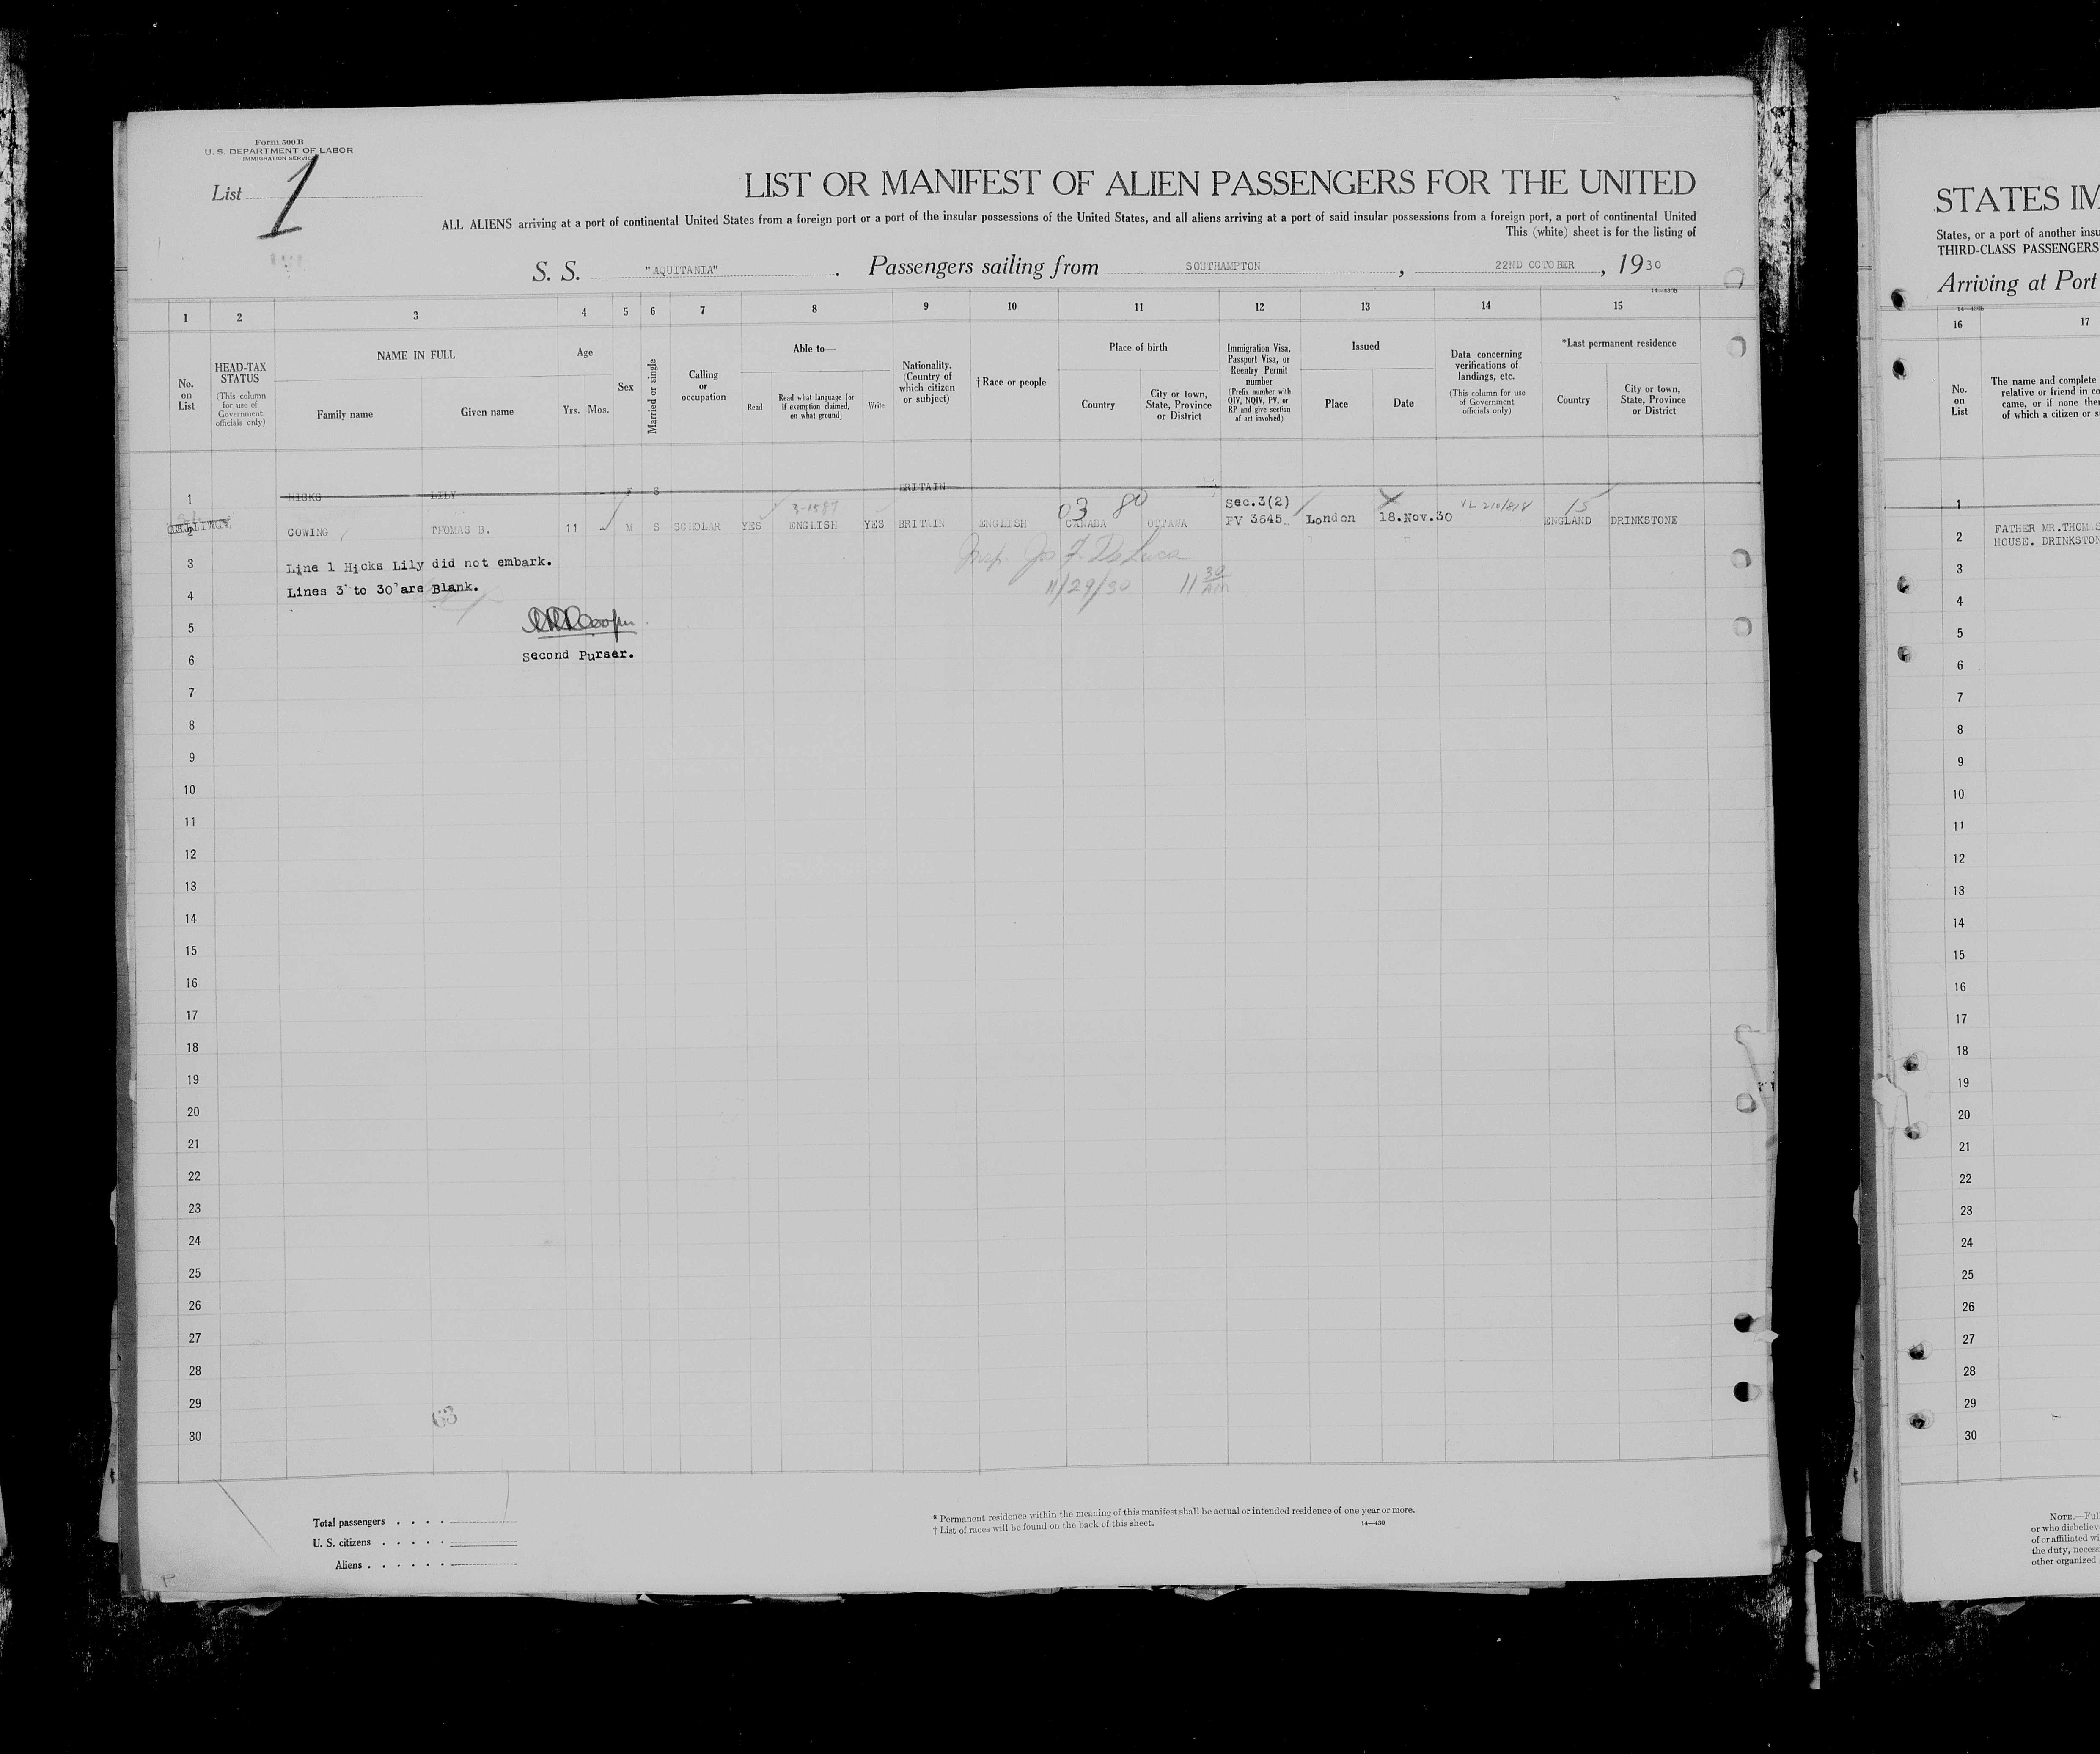 Form 500 B
U. S. DEPARTMENT OF LABOR
IMMIGRATION SERVICE
List 1
LIST OR MANIFEST OF ALIEN PASSENGERS FOR THE UNITED
ALL ALIENS arriving at a port of continental United States from a foreign port or a port of the insular possessions of the United States, and all aliens arriving at a port of said insular possessions from a foreign port, a port of continental United
This (white) sheet is for the listing of
S. S. "AQUITANIA". Passengers sailing from SOUTHAMPTON, 22ND OCTOBER, 1930
14—430b
1 2 3 4 5 6 7 8 9 10 11 12 13 14 15
No. on List
HEAD-TAX STATUS
(This column for use of Government officials only)
NAME IN FULL
Family name
Given name
Age
Yrs. Mos.
Sex
Married or single
Calling or occupation
Able to—
Read
Read what language [or if exemption claimed, on what ground]
Write
Nationality. (Country of which citizen or subject)
† Race or people
Place of birth
Country
City or town, State, Province or District
Immigration Visa, Passport Visa, or Reentry Permit number
(Prefix number with QIV, NQIV, PV, or RP and give section of act involved)
Issued
Place
Date
Data concerning verifications of landings, etc.
(This column for use of Government officials only)
*Last permanent residence
Country
City or town, State, Province or District
1 HICKS LILY F S BRITAIN
03 80 Sec.3(2) 15
3-1587
2 COWING THOMAS B. 11 M S SCHOLAR YES ENGLISH YES BRITAIN ENGLISH CANADA OTTAWA PV 3645 London 18.Nov.30 VL 210/818 ENGLAND DRINKSTONE
3 Line 1 Hicks Lily did not embark.
Insp. Jos F. De Luca
4 Lines 3 to 30 are Blank.
11/29/30 11 30 AM
5
6 Second Purser.
7
8
9
10
11
12
13
14
15
16
17
18
19
20
21
22
23
24
25
26
27
28
29
63
30
Total passengers . . . .
U. S. citizens . . . . .
Aliens . . . . . .
* Permanent residence within the meaning of this manifest shall be actual or intended residence of one year or more.
† List of races will be found on the back of this sheet.
14—430
P
STATES IM
States, or a port of another insu
THIRD-CLASS PASSENGERS
Arriving at Port
14—430b
16 17
No. on List
The name and complete
relative or friend in co
came, or if none ther
of which a citizen or s
1
2 FATHER MR.THOMAS
HOUSE. DRINKSTON
3
4
5
6
7
8
9
10
11
12
13
14
15
16
17
18
19
20
21
22
23
24
25
26
27
28
29
30
NOTE.—Ful
or who disbeliev
of or affiliated wi
the duty, necess
other organized